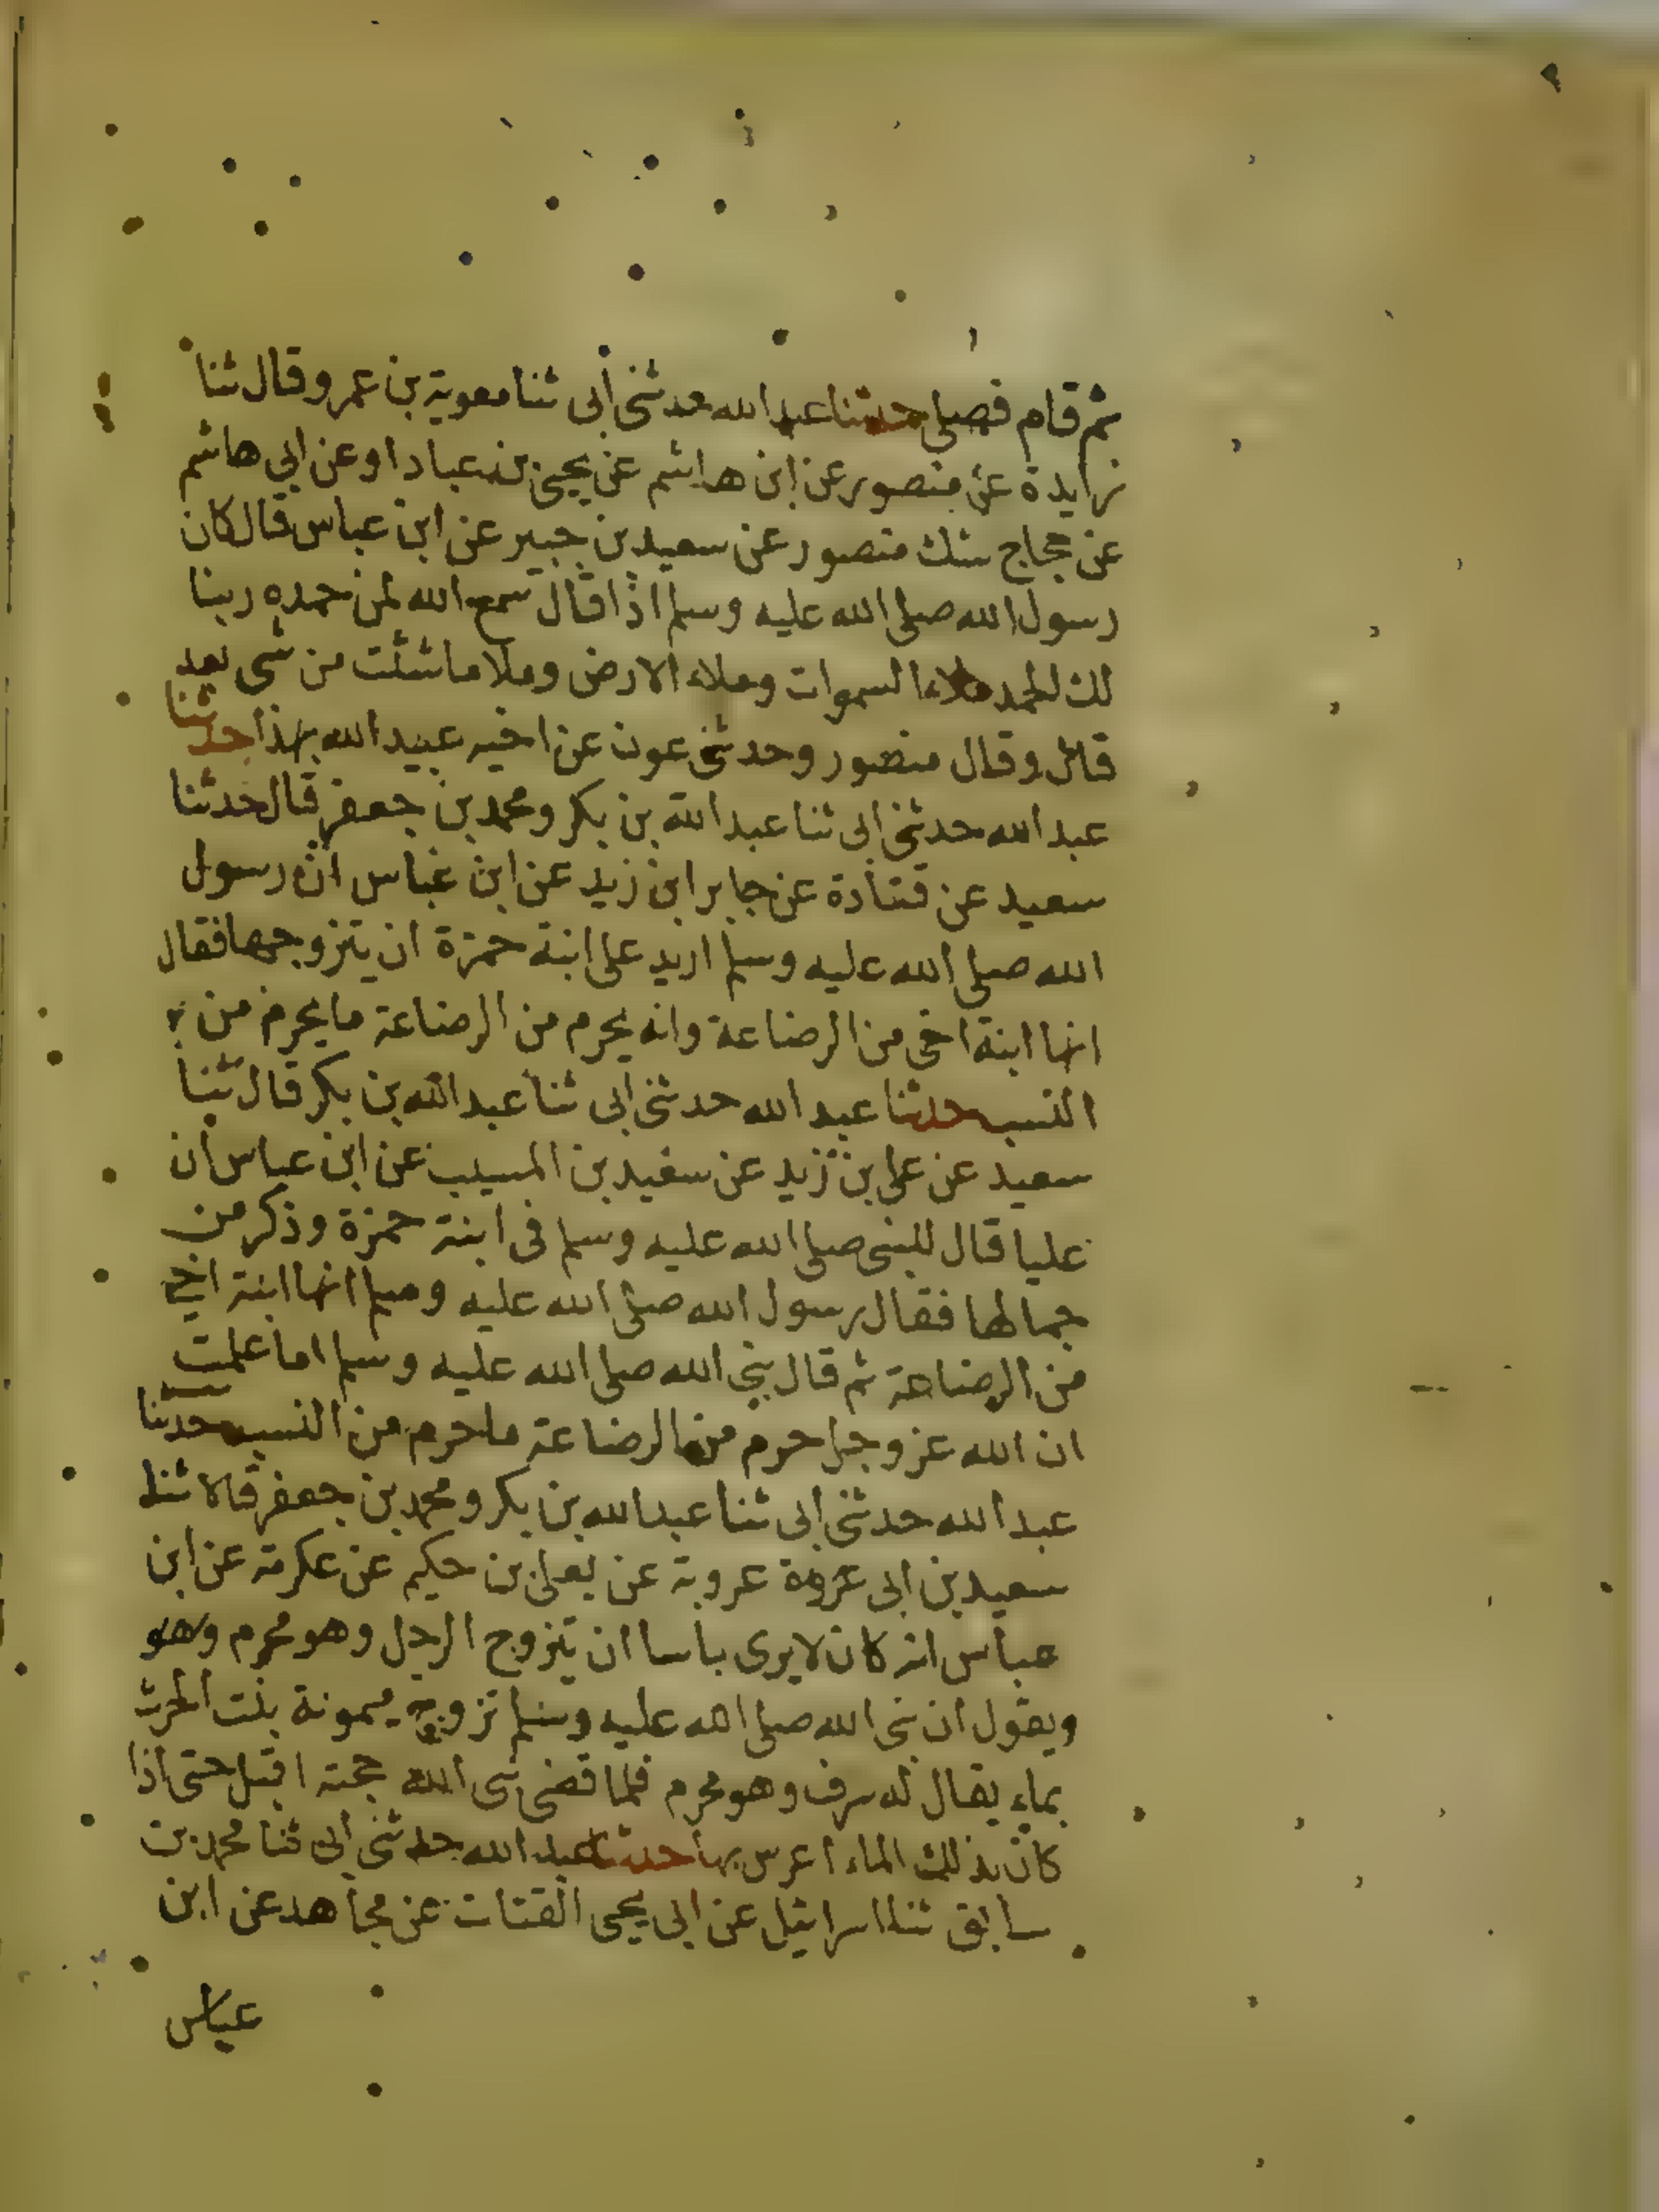 ثم قام فصلى حدثنا عبد الله حدثنى أبى ثنا معوية بن عمرو قال ثنا
زايدة عن منصور عن ابن هاشم عن يحيى بن عباد او عن ابي هاشم
عن حجاج شك منصور عن سعيد بن جبير عن ابن عباس قال كان
رسول الله صلى الله عليه وسلم اذا قال سمع الله لمن حمده ربنا
لك الحمد ملاء السموات وملاء الارض وملا ما شئت من شى بعد
قال وقال منصور وحدثنى عون عن اخيه عبيد الله بهذا حدثنا
عبد الله حدثنى ابى ثنا عبد الله بن بكر ومحمد بن جعفر قال حدثنا
سعيد عن قتادة عن جابر ابن زيد عن ابن عباس ان رسول
الله صلى الله عليه وسلم اريد على ابنة حمزة ان يتزوجها فقال
انها ابنة اخى من الرضاعة وانه يحرم من الرضاعة ما يحرم من
النسب حدثنا عبد الله حدثنى ابى ثنا عبد الله بن بكر قال ثنا
سعيد عن على بن زيد عن سعيد بن المسيب عن ابن عباس ان
عليا قال للنبى صلى الله عليه وسلم فى ابنة حمزة وذكر من
جمالها فقال رسول الله صلى الله عليه وسلم انها ابنة اخي
من الرضاعة ثم قال نبى الله صلى الله عليه وسلم اما علمت
ان الله عز وجل حرم من الرضاعة ما حرم من النسب حدثنا
عبد الله حدثنى ابى ثنا عبد الله بن بكر ومحمد بن جعفر قالا ثنا
سعيد بن ابى عروبة عن يعلى بن حكيم عن عكرمة عن ابن
عباس انه كان لا يرى باسا ان يتزوج الرجل وهو محرم وهو
ويقول ان نبى الله صلى الله عليه وسلم تزوج ميمونة بنت الحرث
بماء يقال له سرف وهو محرم فلما قضى نبى الله حجته اقبل حتى اذا
كان بذلك الماء اعرس بها حدثنا عبد الله حدثنى ابى ثنا محمد بن
سابق ثنا اسرائيل عن ابى يحيى القتات عن مجاهد عن ابن
عباس